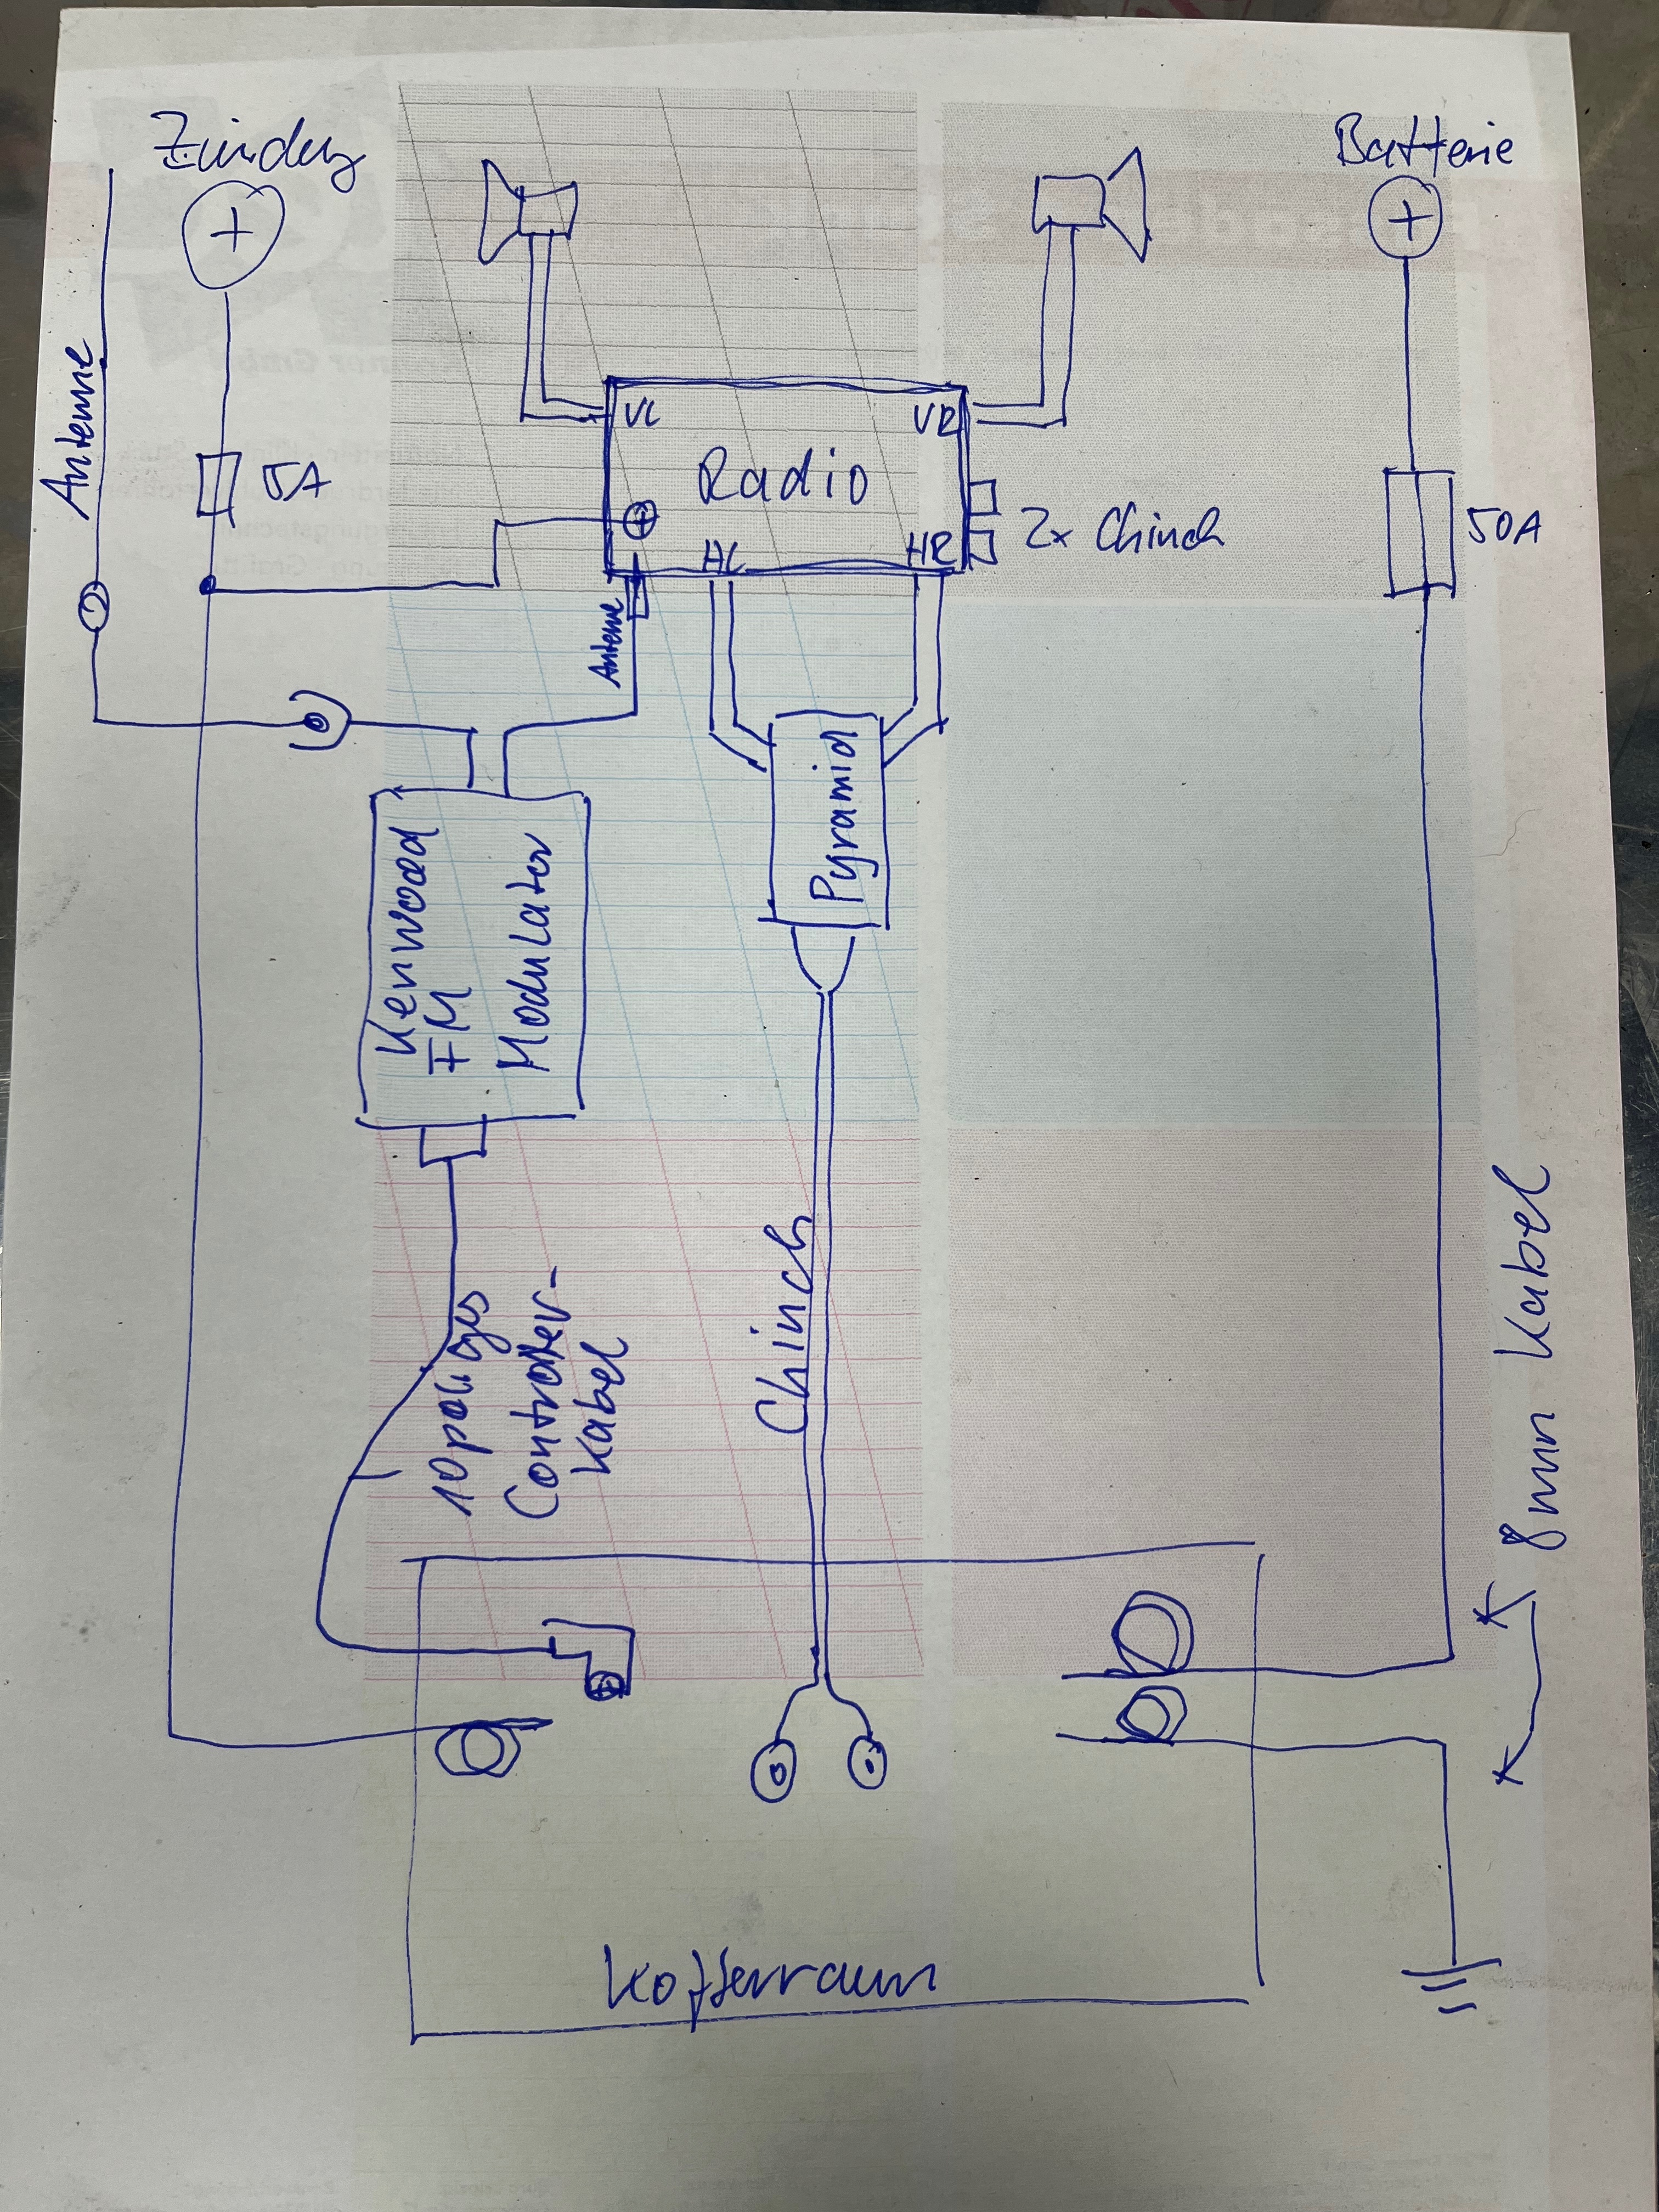 Zündung
Batterie
+
+
Antenne
5A
VL
VR
Radio
+
HL
HR
2x Chinch
50A
Antenne
Pyramid
Kenwood
FM
Modulator
10poliges
Controler-
kabel
Chinch
8mm Kabel
Kofferraum